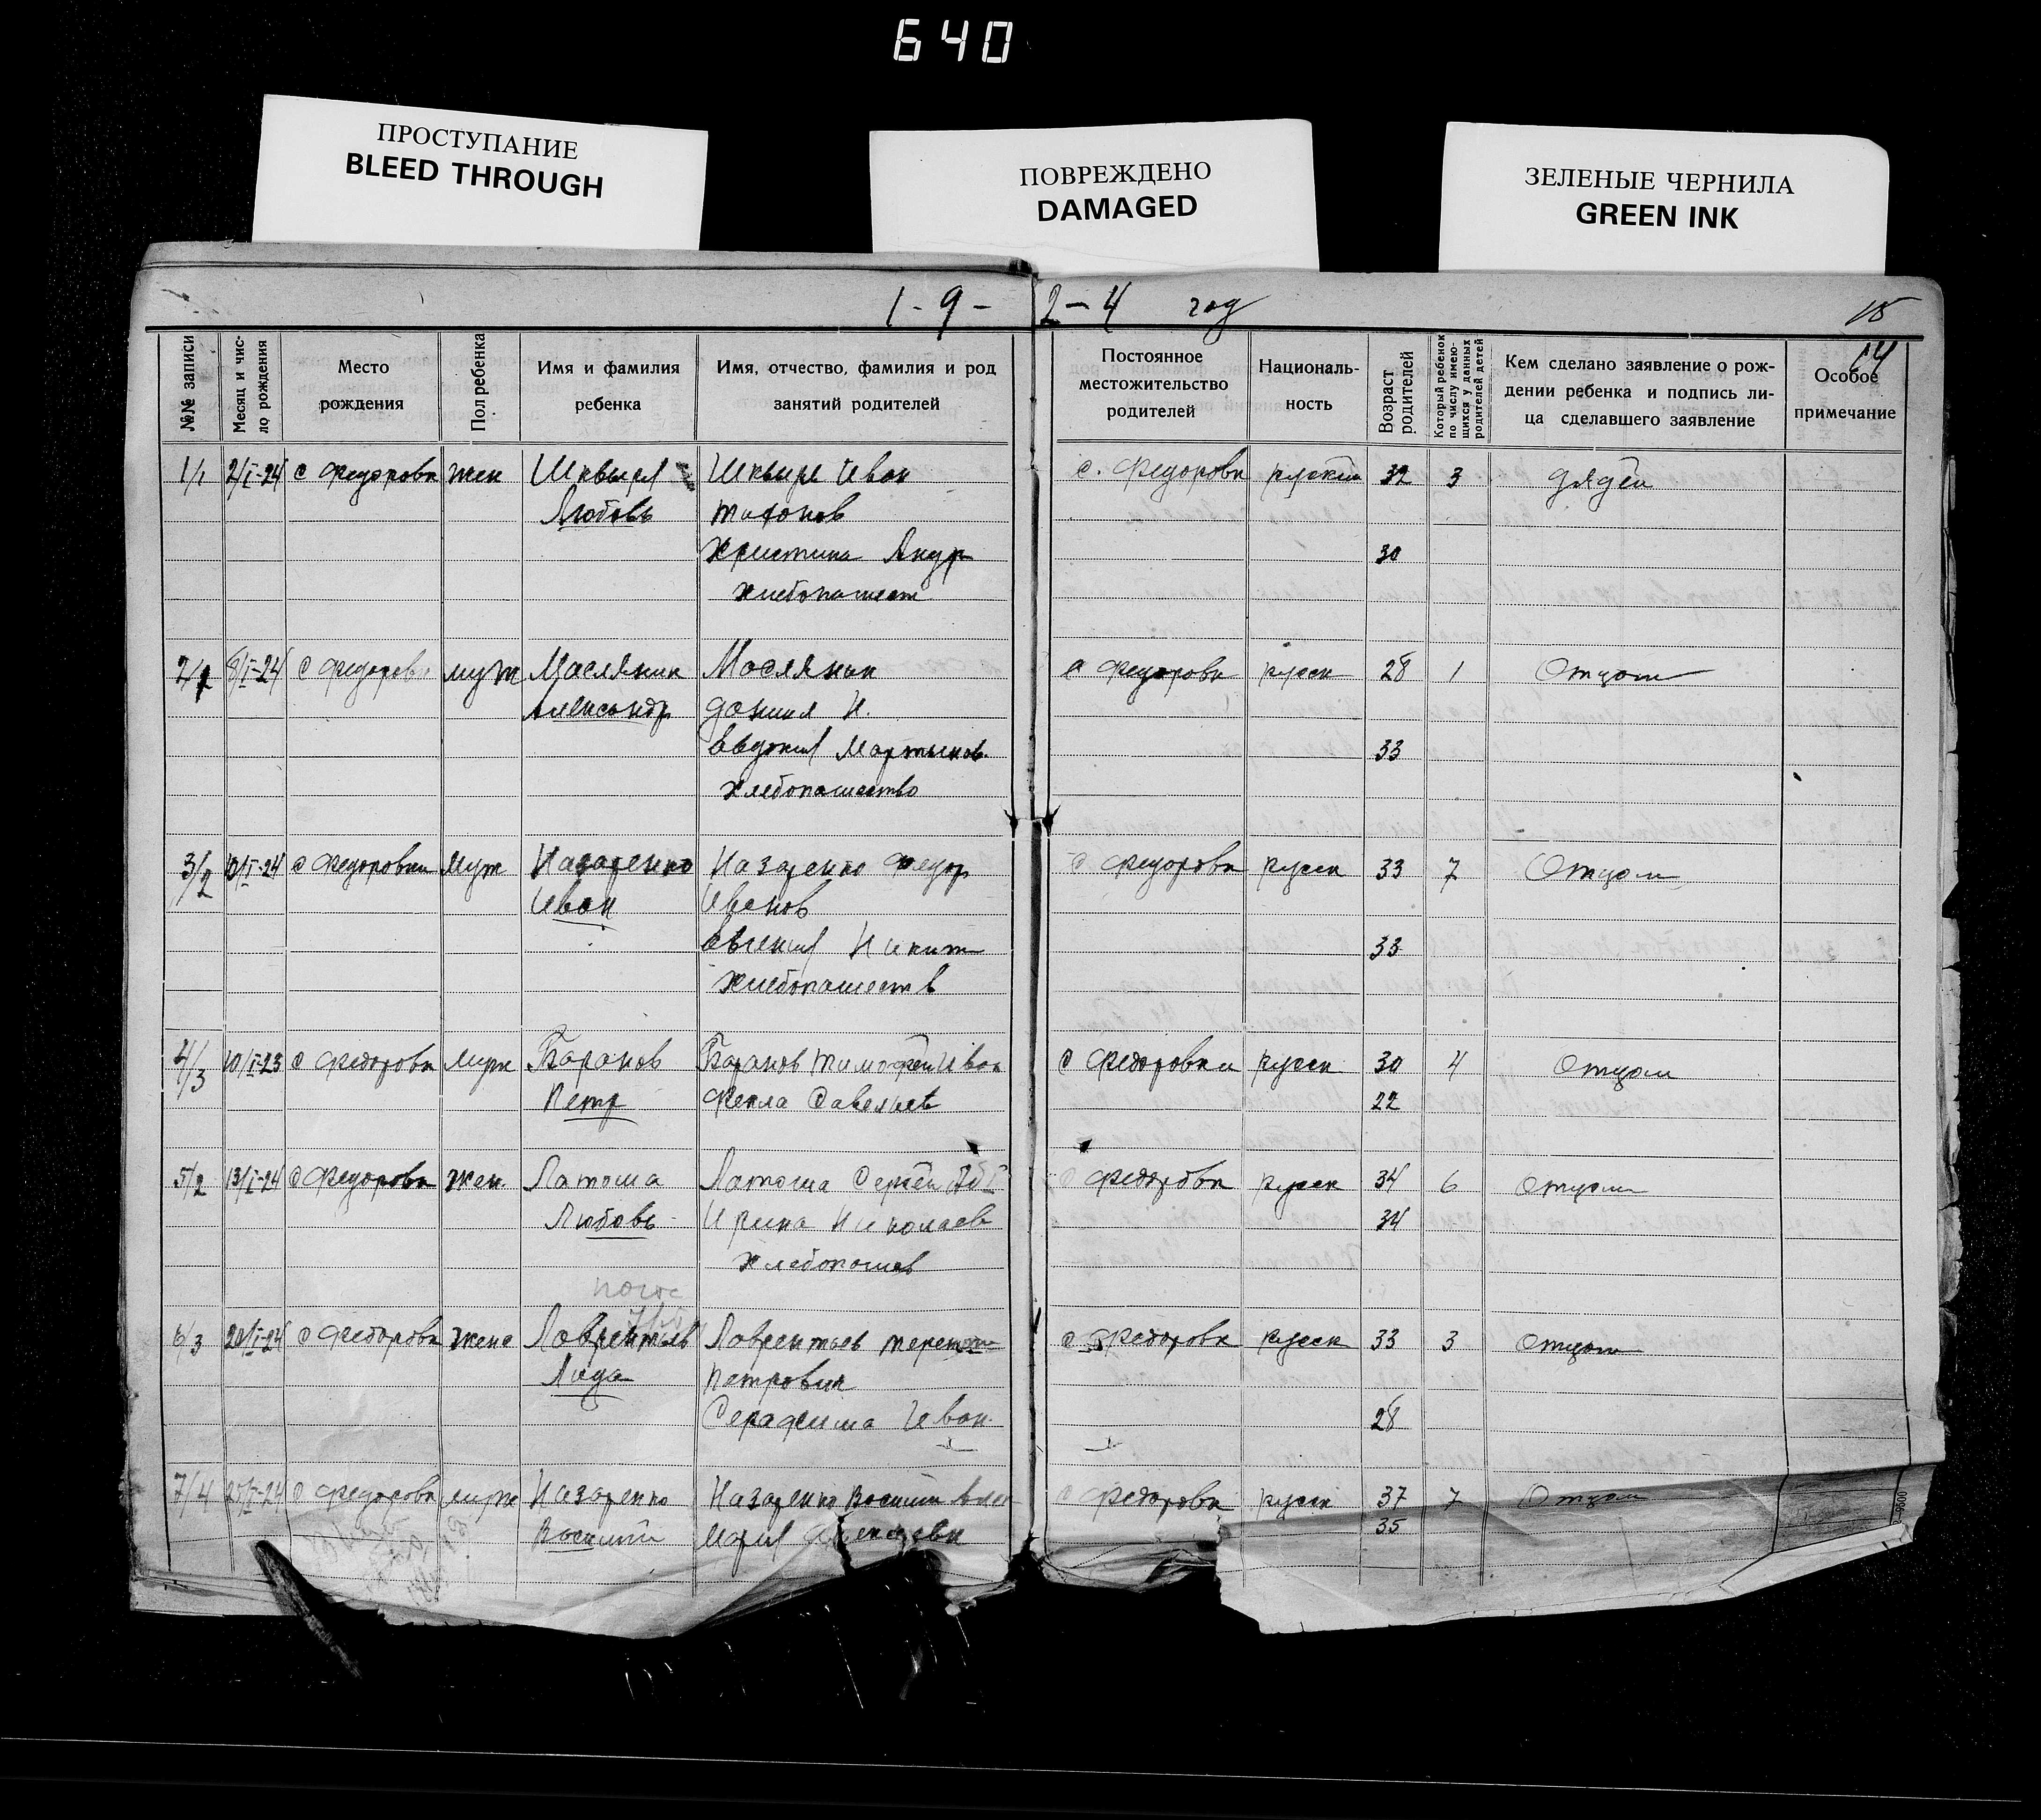 640
ПРОСТУПАНИЕ
BLEED THROUGH
ПОВРЕЖДЕНО
DAMAGED
ЗЕЛЕНЫЕ ЧЕРНИЛА
GREEN INK
1-9-2-4 год
15
14
№№ записи
Месяц и чис-
ло рождения
Место
рождения
Пол ребенка
Имя и фамилия
ребенка
Имя, отчество, фамилия и род
занятий родителей
Постоянное
местожительство
родителей
Националь-
ность
Возраст
родителей
Который ребенок
по числу имею-
щихся у данных
родителей детей
Кем сделано заявление о рож-
дении ребенка и подпись ли-
ца сделавшего заявление
Особое
примечание
1/1 2/I-24 с Федоровка жен Шквыря Шквыря Иван с. Федоровк русский 32 3 дядей
Любовь
Христина Андр 30
хлебопашест
2/2 8/I-24 с Федоров муж Маслянин Маслянин с Федоровк русск 28 1 Отцом
Александр Данил И.
Евдокия Мартынов. 33
Хлебопашество
3/2 10/I-24 с Федоровка муж Назаренко Назаренко Федор с Федоровк русск 33 7 Отцом
Иван Иванов
Евгения Никит 33
Хлебопашеств
4/3 10/I-23 с Федоровк муж Баранов Баранов Тимофей Иван с Федоровка русск 30 4 Отцом
Петр Фекла Савельев 22
5/2 13/I-24 с Федоровк жен. Латоша Латоша Сергей с Федоровк русск 34 6 Отцом
Любовь Ирина Николаев 34
Хлебопашев
6/3 20/I-24 с Федоровк женс Лаврентьев Лаврентьев с Федоровк русск 33 3 Отцом
Лида Петрович
Серафима Иван. 28
7/4 25/I-24 с Федоровк муж Назаренко Назаренко Василий с Федоровк русск 37 7 Отцом
Василий Мария Алексеевн 35